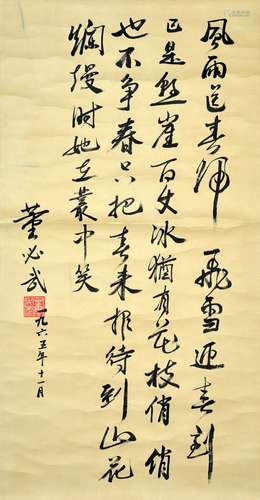 風雨送春归 飛雪迎春到
已是悬崖百丈冰猶有花枝俏俏
也不争春只把春来报待到山花
爛熳时她在叢中笑
董必武
一九六五年十一月